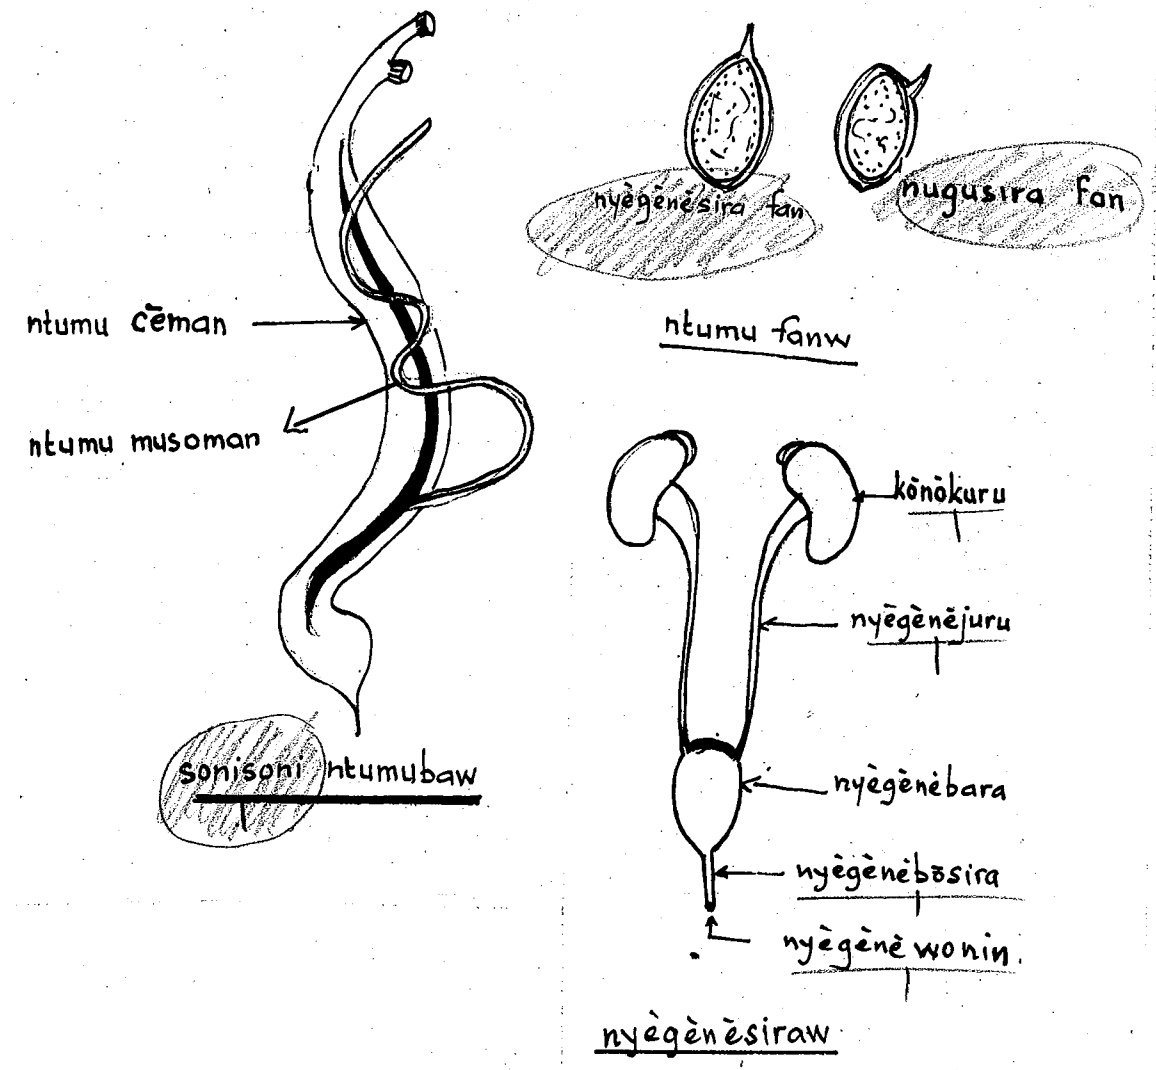 ntumu cēman
ntumu musoman
sonisoni ntumubaw
nyègènèsira fan
nugusira fan
ntumu fanw
kōnòkuru
nyēgènèjuru
nyègènèbara
nyègènèbōsira
nyègènè wonin.
nyègènèsiraw